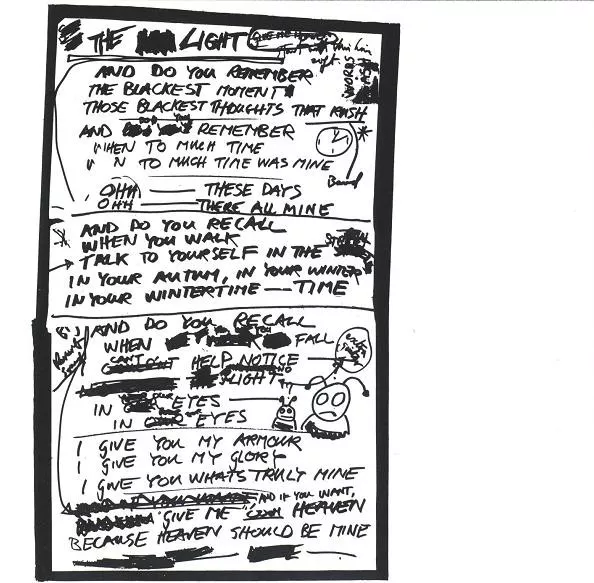 THE LIGHT
AND DO YOU REMEMBER
THE BLACKEST MOMENT
THOSE BLACKEST THOUGHTS THAT RUSH
WORDS
DO YOU
AND REMEMBER
WHEN TO MUCH TIME
N TO MUCH TIME WAS MINE
OHH —— THESE DAYS
OHH —— THERE ALL MINE
AND DO YOU RECALL
WHEN YOU WALK
TALK TO YOURSELF IN THE
IN YOUR AUTUM, IN YOUR WINTER
IN YOUR WINTERTIME —— TIME
AND DO YOU RECALL
YOU
WHEN FALL
CAN'T HELP NOTICE
LIGHT
IN EYES
IN EYES
I GIVE YOU MY ARMOUR
I GIVE YOU MY GLORY
I GIVE YOU WHATS TRULY MINE
AND IF YOU WANT,
GIVE ME HEAVEN
BECAUSE HEAVEN SHOULD BE MINE